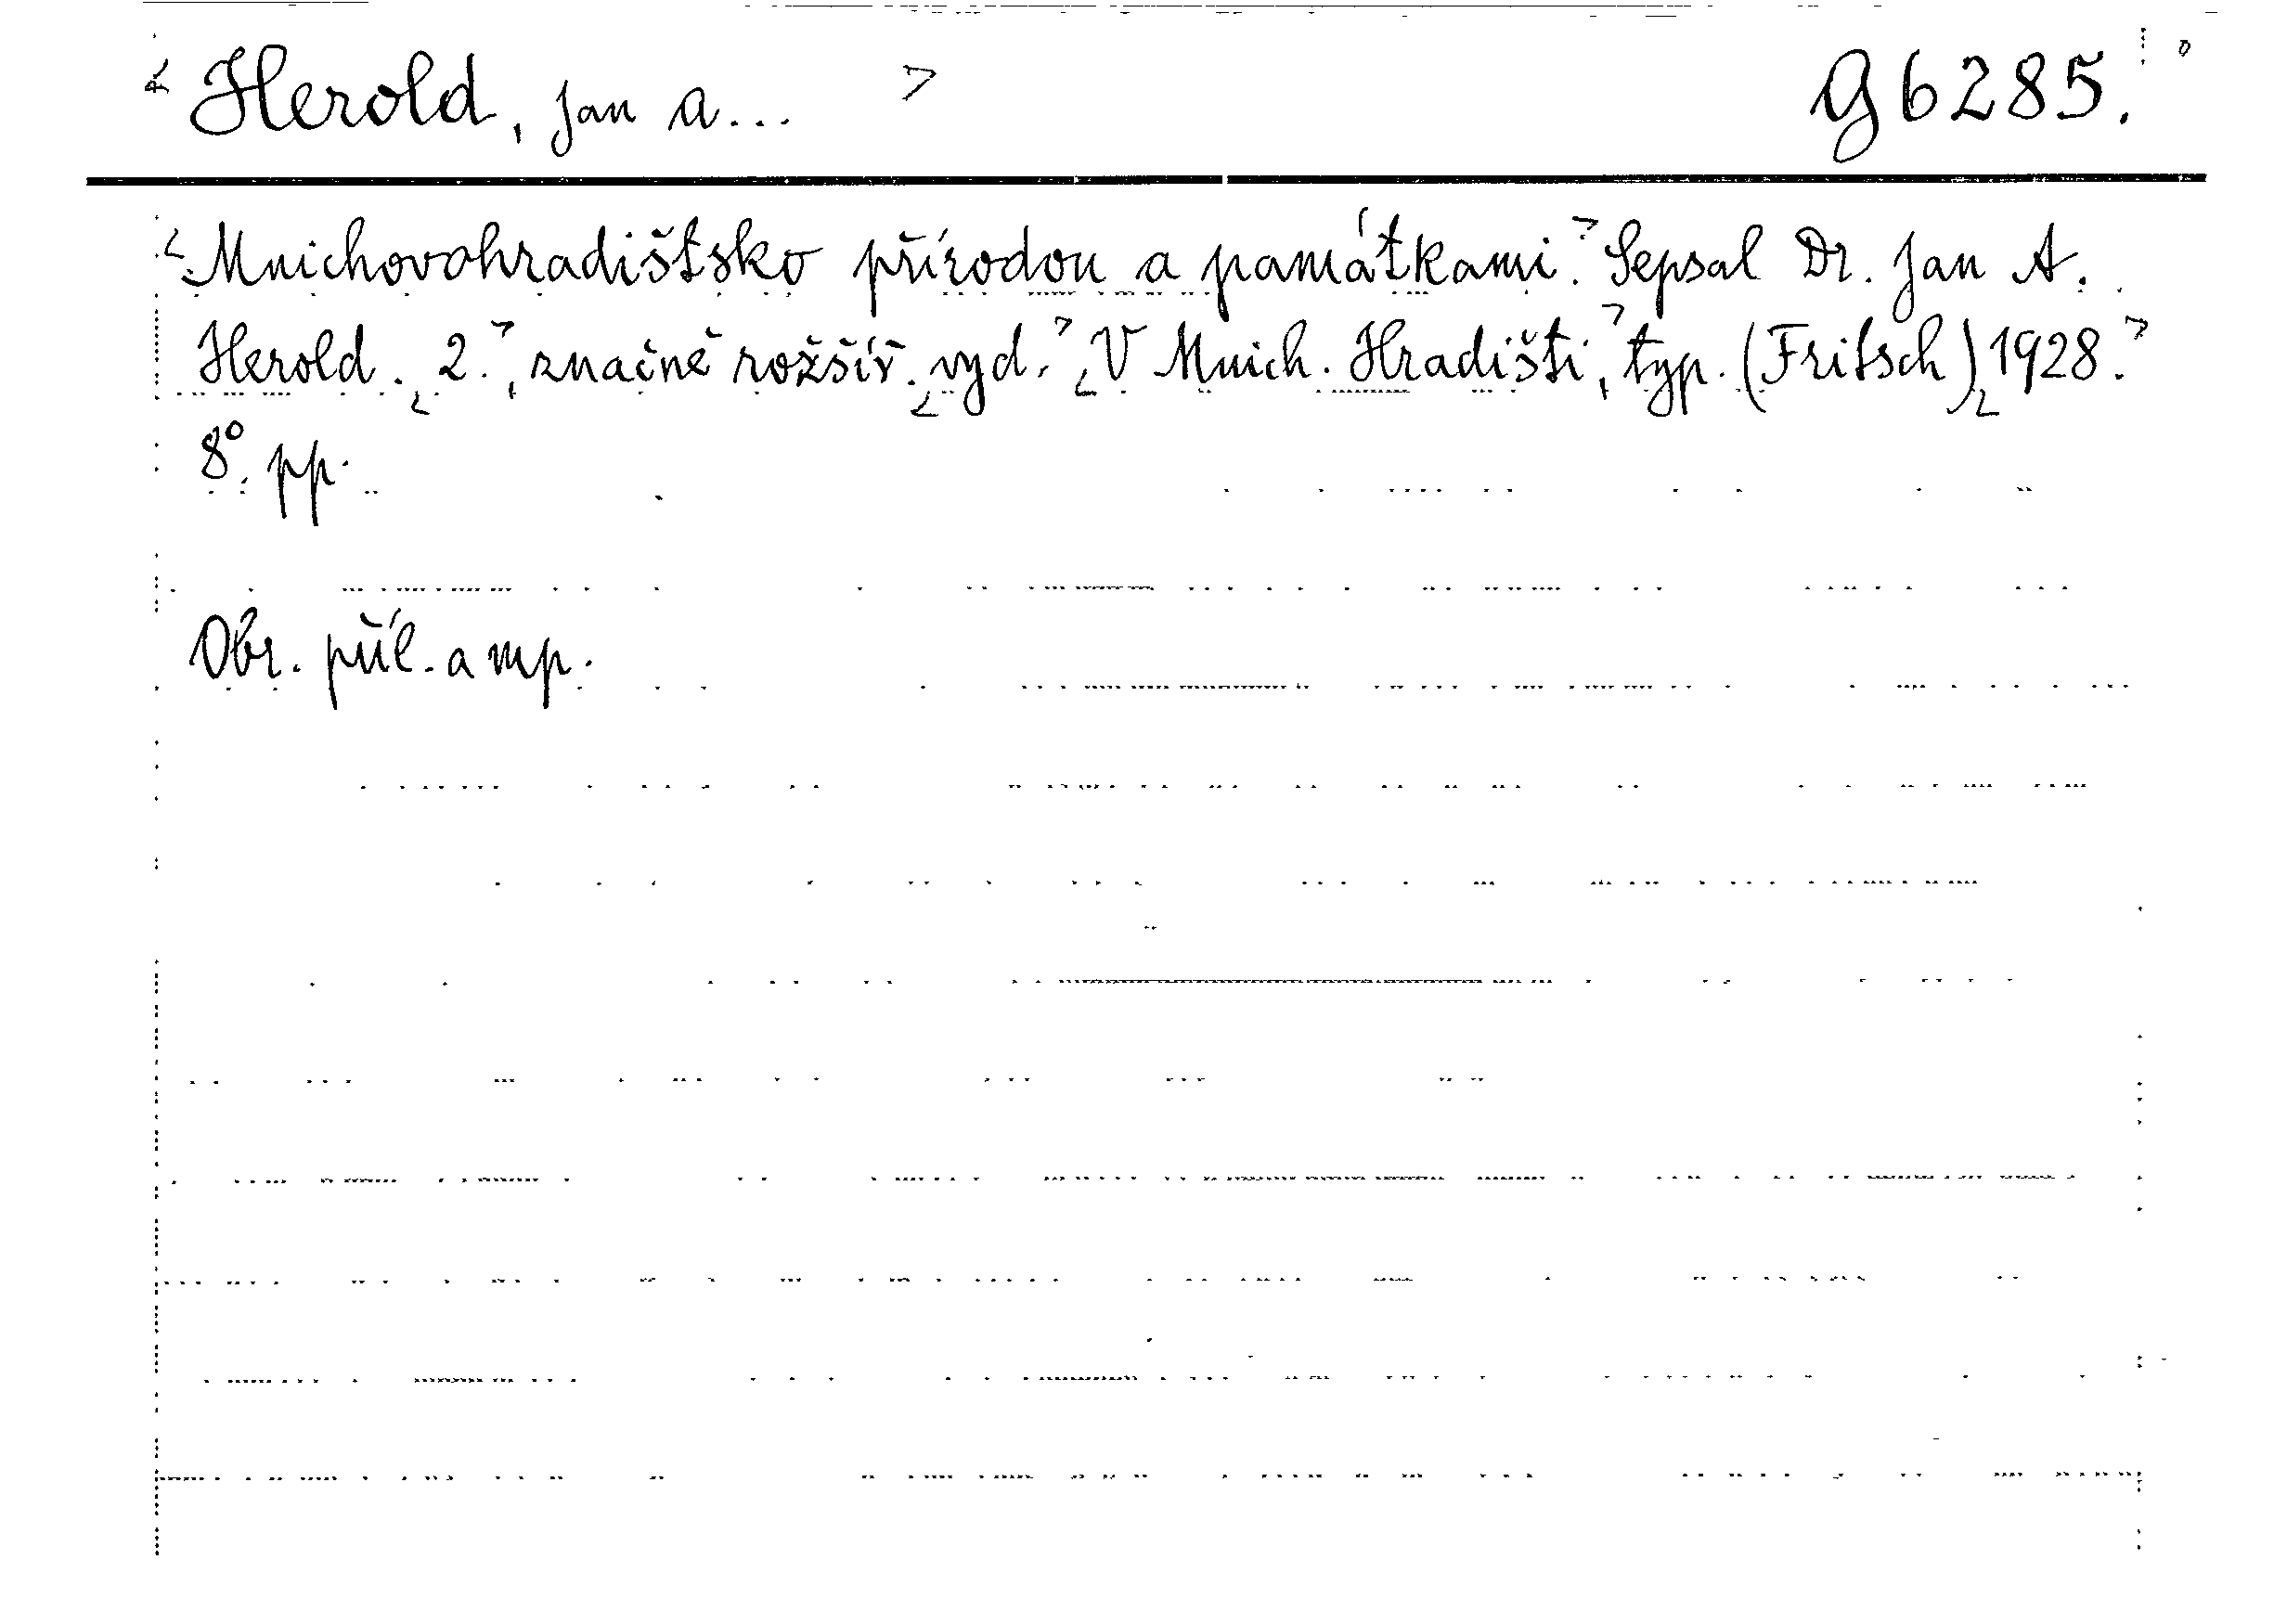 < Herold, Jan A... > G 6285.
<Mnichovohradištsko přírodou a památkami.> Sepsal Dr. Jan A.
Herold. <2.>, značně rožšíř. <vyd.> <V Mnich. Hradišti,> typ. (Fritsch) <1928.>
8°. pp.
Obr. příl. a mp.